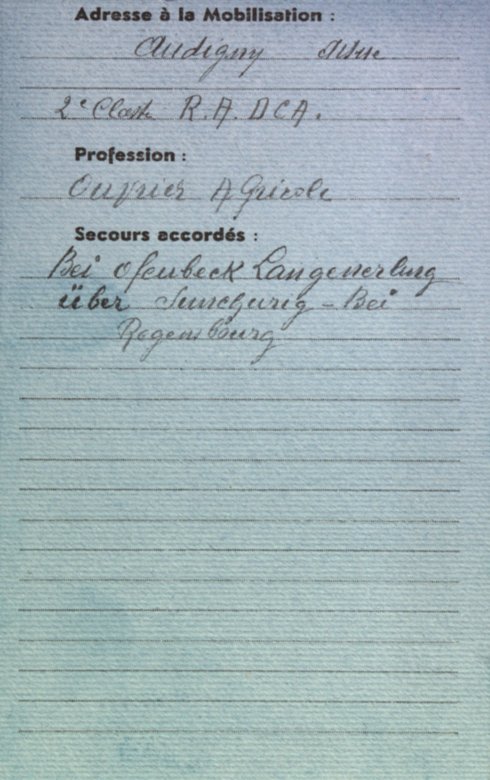 Adresse à la Mobilisation :
Audigny Aisne
2e Classe R.A. DCA.
Profession :
Ouvrier Agricole
Secours accordés :
Bei Ofenbeck Langenerling
über Sünching - Bei
Regensbourg